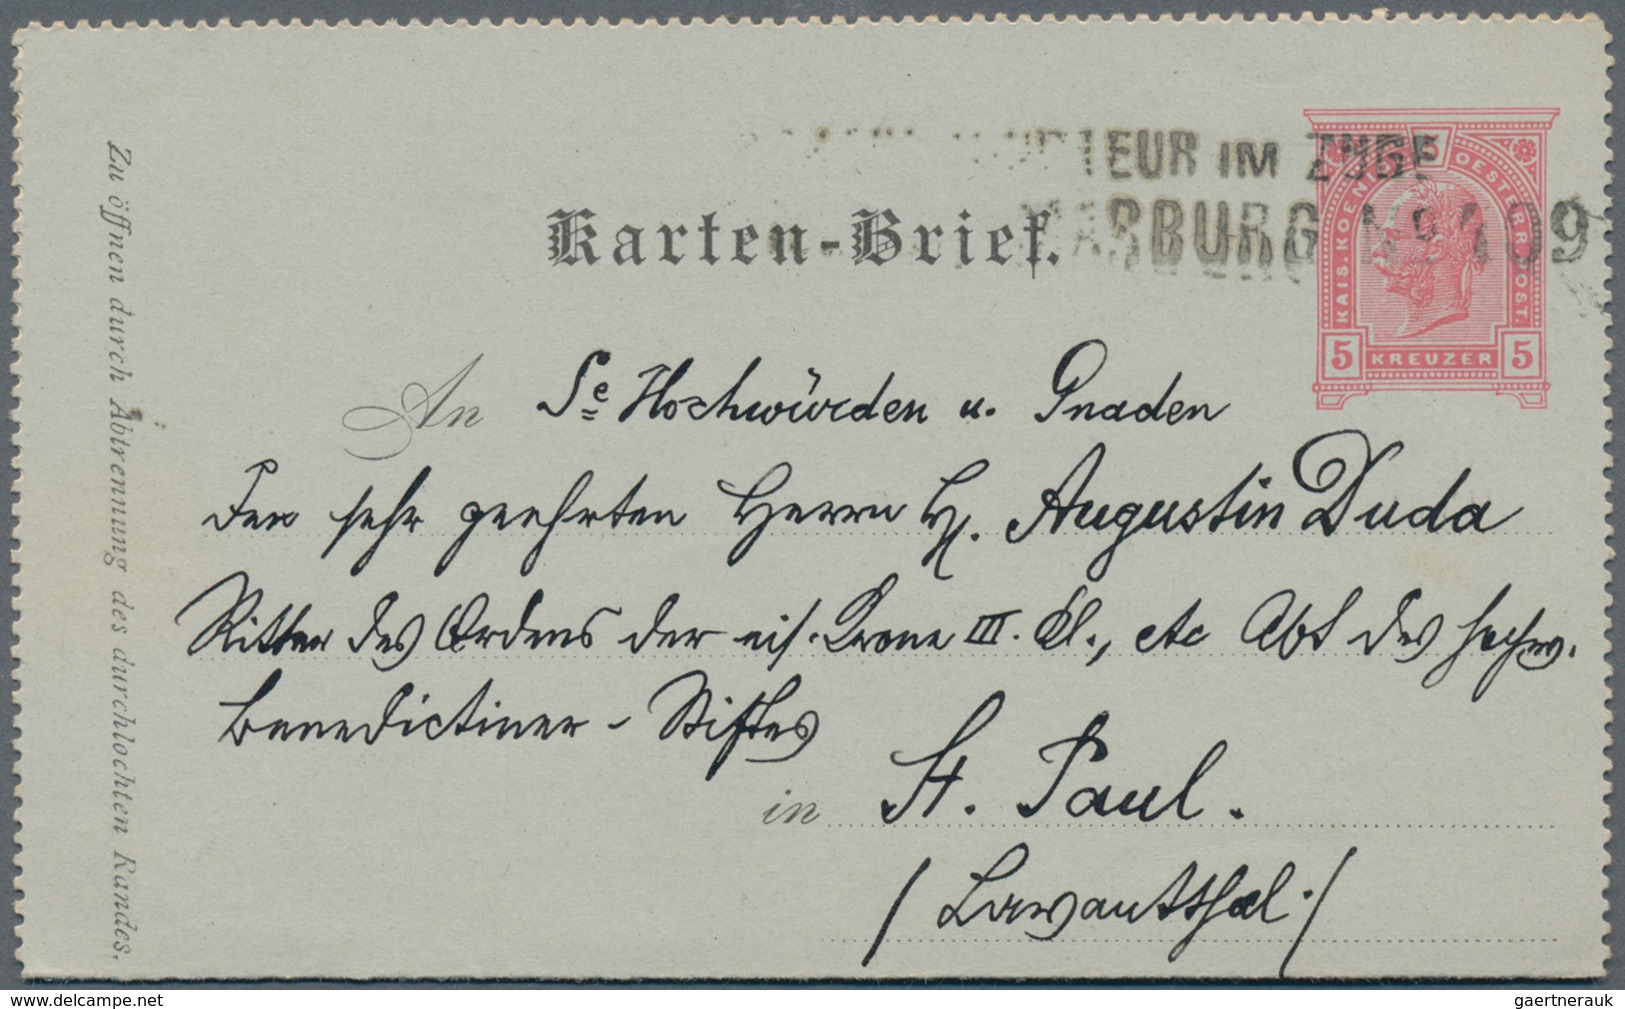 Zu öffnen durch Abtrennung des durchlochten Randes.
TEUR IM ZUGE
MARBURG No 409
Karten-Brief.
KAIS. KOENIGL. OESTERR. POST.
5 KREUZER 5
An Se Hochwürden u. Gnaden
Den sehr geehrten Herrn H. Augustin Duda
Ritter des Ordens der eis. Krone III. Cl., etc Abt des hochw.
Benedictiner-Stiftes
in St. Paul.
/ Lavantthal. /
delcampe.net
gaertnerauk